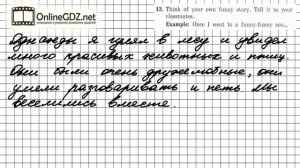 ОНЛАЙН ГДЗ
www.OnlineGDZ.net
13. Think of your own funny story. Tell it to your
classmates.
Example: Once I went to a funny-funny zoo...
Однажды я гулял в лесу и увидел
много красивых животных и птиц.
Они были очень дружелюбные, они
умели разговаривать и петь мы
веселились вместе.